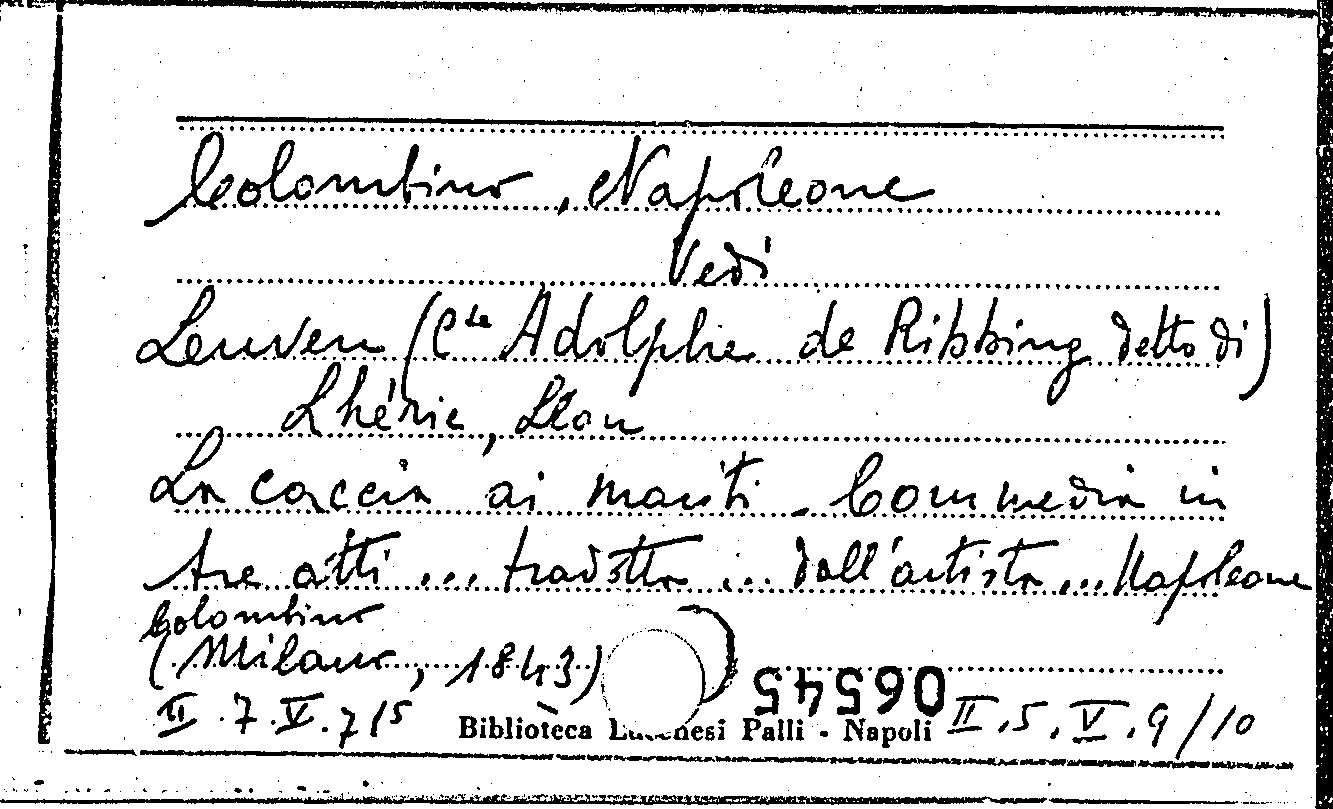 Colombino, Napoleone
Vedi
Leuven (Cte Adolphe de Ribbing detto di)
Lhérie, Léon
La caccia ai mariti. Commedia in
tre atti ... tradotta ... dall'artista ... Napoleone
Colombino
(Milano, 1843)
06545
II.7.V.7/5 Biblioteca Lucchesi Palli - Napoli II.5.V.9/10